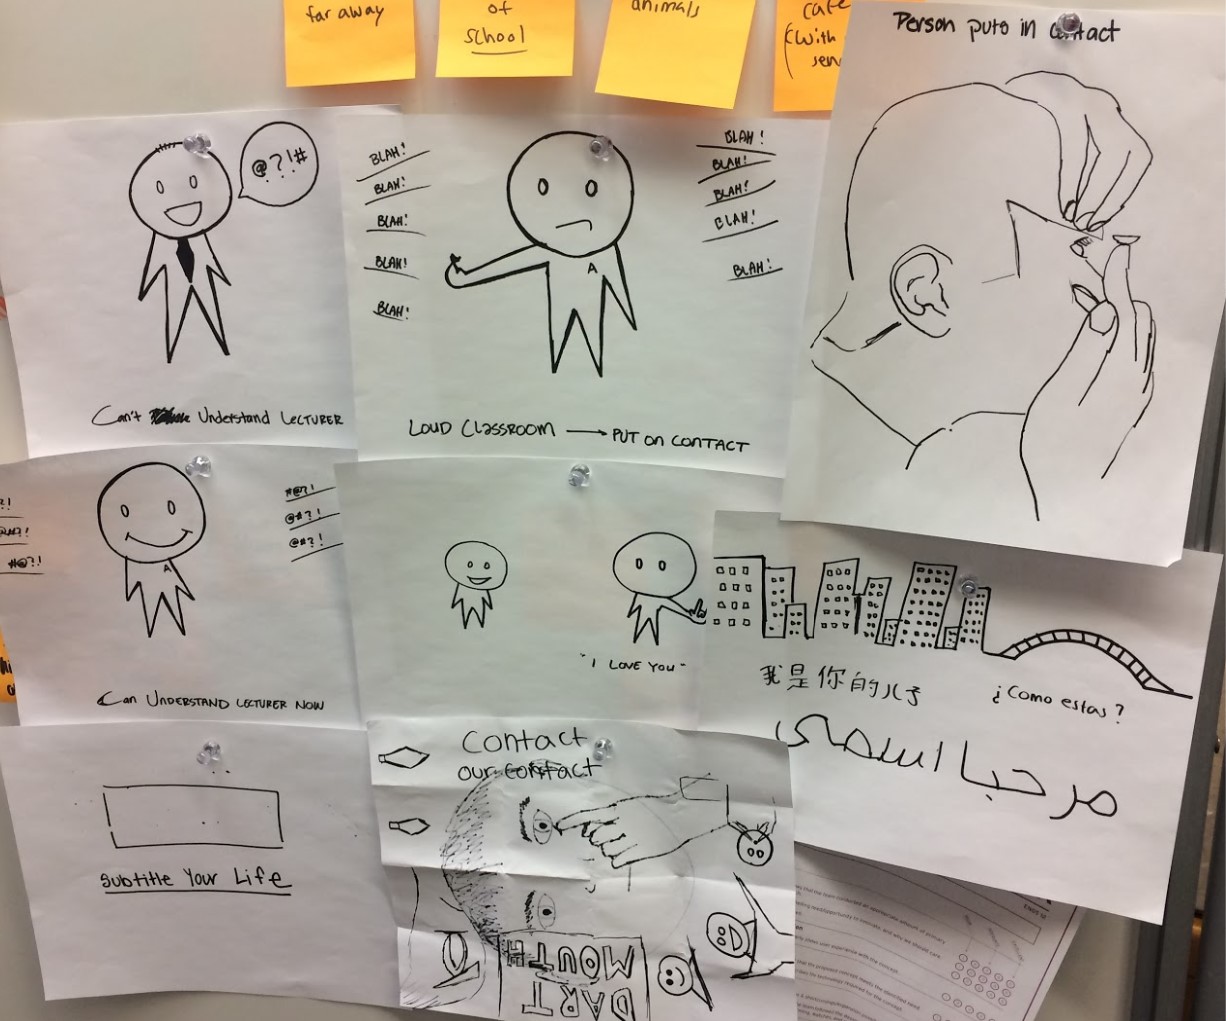 far away
of
school
animals
cafe
(with
sen
Person puts in contact
@?!#
Can't Understand LECTURER
BLAH!
BLAH!
BLAH!
BLAH!
BLAH!
BLAH!
BLAH!
BLAH!
BLAH!
BLAH!
A
LOUD CLASSROOM → PUT ON CONTACT
?!
@#?!
#@?!
#@?!
@#?!
@#?!
A
Can UNDERSTAND LECTURER NOW
"I LOVE YOU"
我是你的儿子
¿Como estas?
مرحبا اسمي
Subtitle Your Life
Contact
our contact
DART
MOUTH